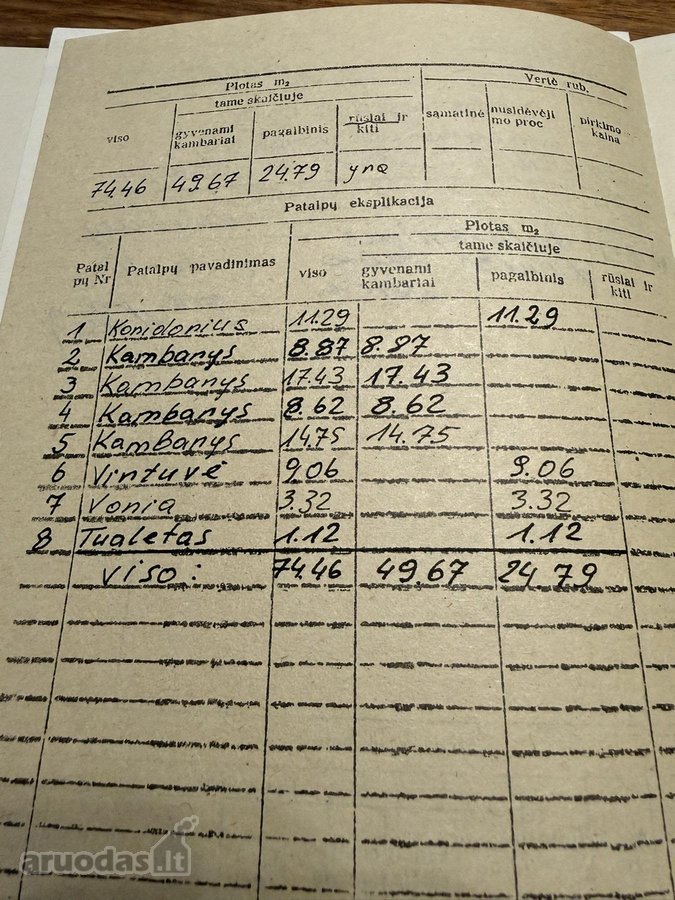 Plotas m₂ Vertė rub.
tame skaičiuje
viso gyvenami kambariai pagalbinis rūsiai ir kiti sąmatinė nusidėvėji mo proc pirkimo kaina
74.46 49.67 24.79 yra
Patalpų eksplikacija
Plotas m₂
tame skaičiuje
Patal pų Nr Patalpų pavadinimas viso gyvenami kambariai pagalbinis rūsiai ir kiti
1 Koridorius 11.29 11.29
2 Kambarys 8.87 8.87
3 Kambarys 17.43 17.43
4 Kambarys 8.62 8.62
5 Kambarys 14.75 14.75
6 Virtuvė 9.06 9.06
7 Vonia 3.32 3.32
8 Tualetas 1.12 1.12
viso: 74.46 49.67 24.79
aruodas.lt